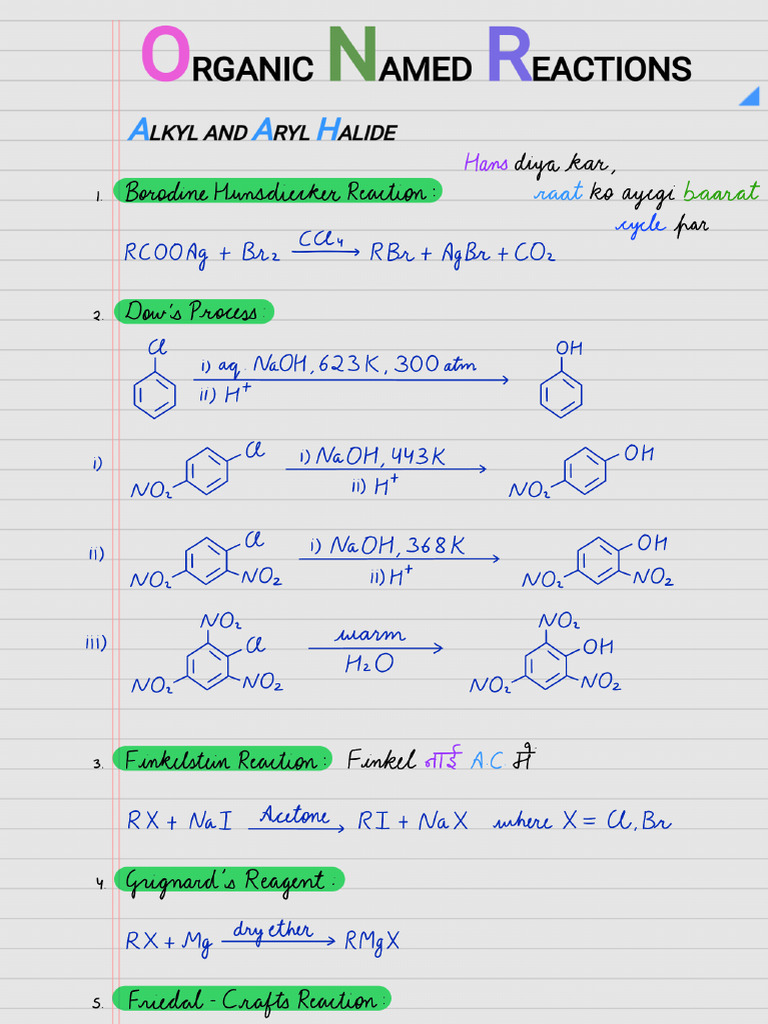 ORGANIC NAMED REACTIONS
ALKYL AND ARYL HALIDE
Hans diya kar,
raat ko ayegi baarat
cycle par
1. Borodine Hunsdiecker Reaction:
RCOOAg + Br₂ CCl₄ → RBr + AgBr + CO₂
2. Dow's Process:
Cl i) aq. NaOH, 623K, 300 atm OH
ii) H⁺
i) Cl i) NaOH, 443K OH
NO₂ ii) H⁺ NO₂
ii) Cl i) NaOH, 368K OH
NO₂ NO₂ ii) H⁺ NO₂ NO₂
NO₂ NO₂
iii) Cl warm OH
NO₂ NO₂ H₂O NO₂ NO₂
3. Finkelstein Reaction: Finkel नाई A.C. में
RX + NaI Acetone → RI + NaX where X = Cl, Br
4. Grignard's Reagent.
RX + Mg dry ether → RMgX
5. Friedal - Crafts Reaction: